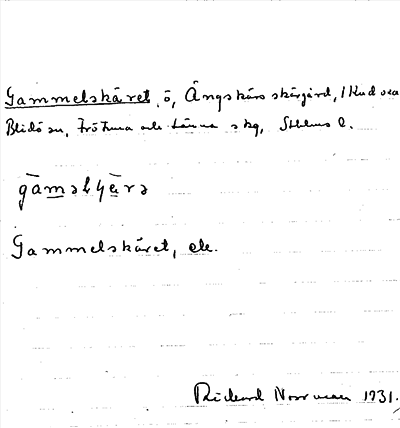 Gammelskäret, ö, Ängskärs skärgård, i Rud sea
Blidö sn, Frötuna och Länna skg, Sthlms l.
gām
Gammelskäret, ele.
Rickard Norrman 1931.